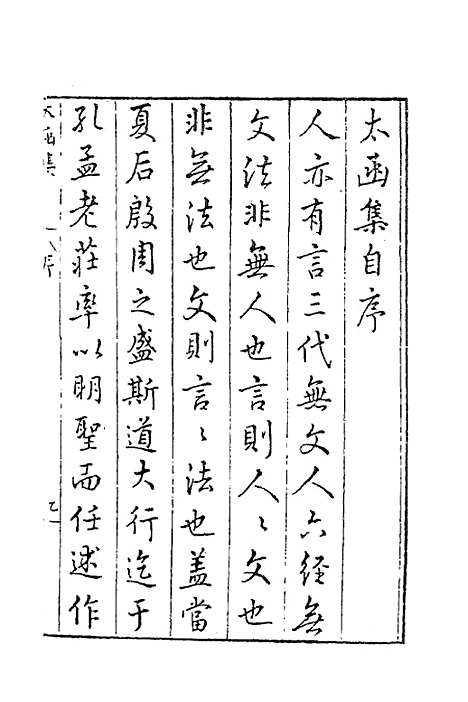 太函集自序
人亦有言三代無文人六經無
文法非無人也言則人〻文也
非無法也文則言〻法也盖當
夏后殷周之盛斯道大行迄于
孔孟老莊率以明聖而任述作
太函集 序